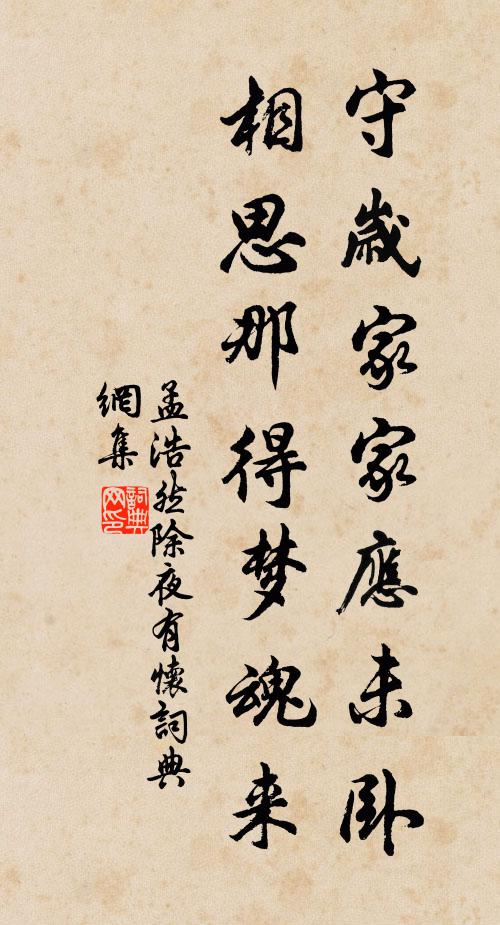 守歳家家應未卧
相思那得梦魂来
孟浩然除夜有懷詞典
網集
詞典
网印